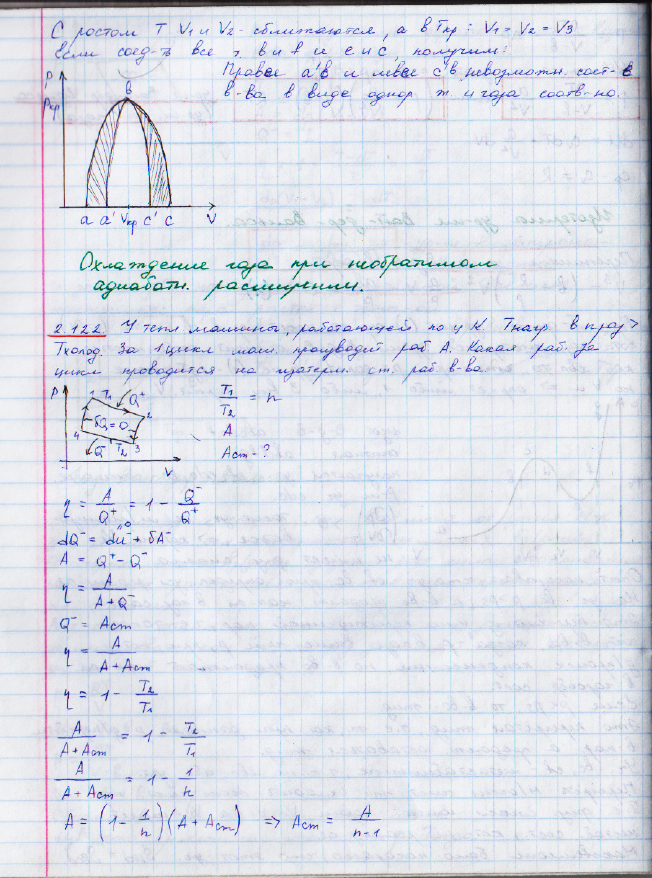 С ростом T V1 и V2 - сближаются, а в Tкр: V1 = V2 = V3
Если соед-ть все т. в и в и с и с, получим:
Правее a'в и левее c'в невозможн. сост-е
в-ва в виде однор ж. и газа соотв-но.
P
Pкр
в
a a' Vкр c' c V
Охлаждение газа при необратимом
адиабатн. расширении.
2.122. У тепл машины, работающей по ц К. Tнагр в n раз >
Tхолод. За 1 цикл маш. производит раб A. Какая раб. за
цикл проводится на изотерм. ст. раб в-ва.
P
1 T1 Q+
2
δQ=0
4
Q- T2 3
V
T1/T2 = n
A
Aст - ?
η = A/Q+ = 1 - Q-/Q+
0
dQ- = dU- + δA-
A = Q+ - Q-
η = A/(A+Q-)
Q- = Aст
η = A/(A+Aст)
η = 1 - T2/T1
A/(A+Aст) = 1 - T2/T1
A/(A+Aст) = 1 - 1/n
A = (1 - 1/n)(A + Aст) => Aст = A/(n-1)